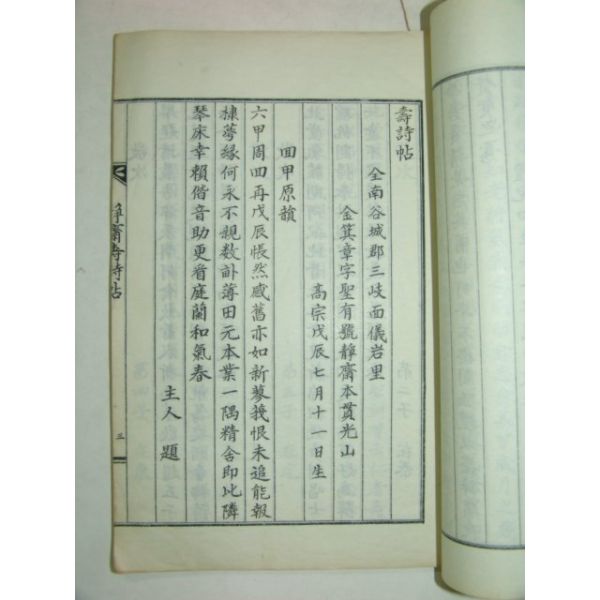 壽詩帖
全南谷城郡三岐面儀岩里
金箕章字聖有號靜齋本貫光山
高宗戊辰七月十一日生
回甲原韻
六甲周回再戊辰悵然感舊亦如新蓼莪恨未追能報
棣萼緣何永不親数畝薄田元本業一隅精舍即比隣
琴床幸賴偕音助更看庭蘭和氣春
主人題
靜齋壽詩帖
三